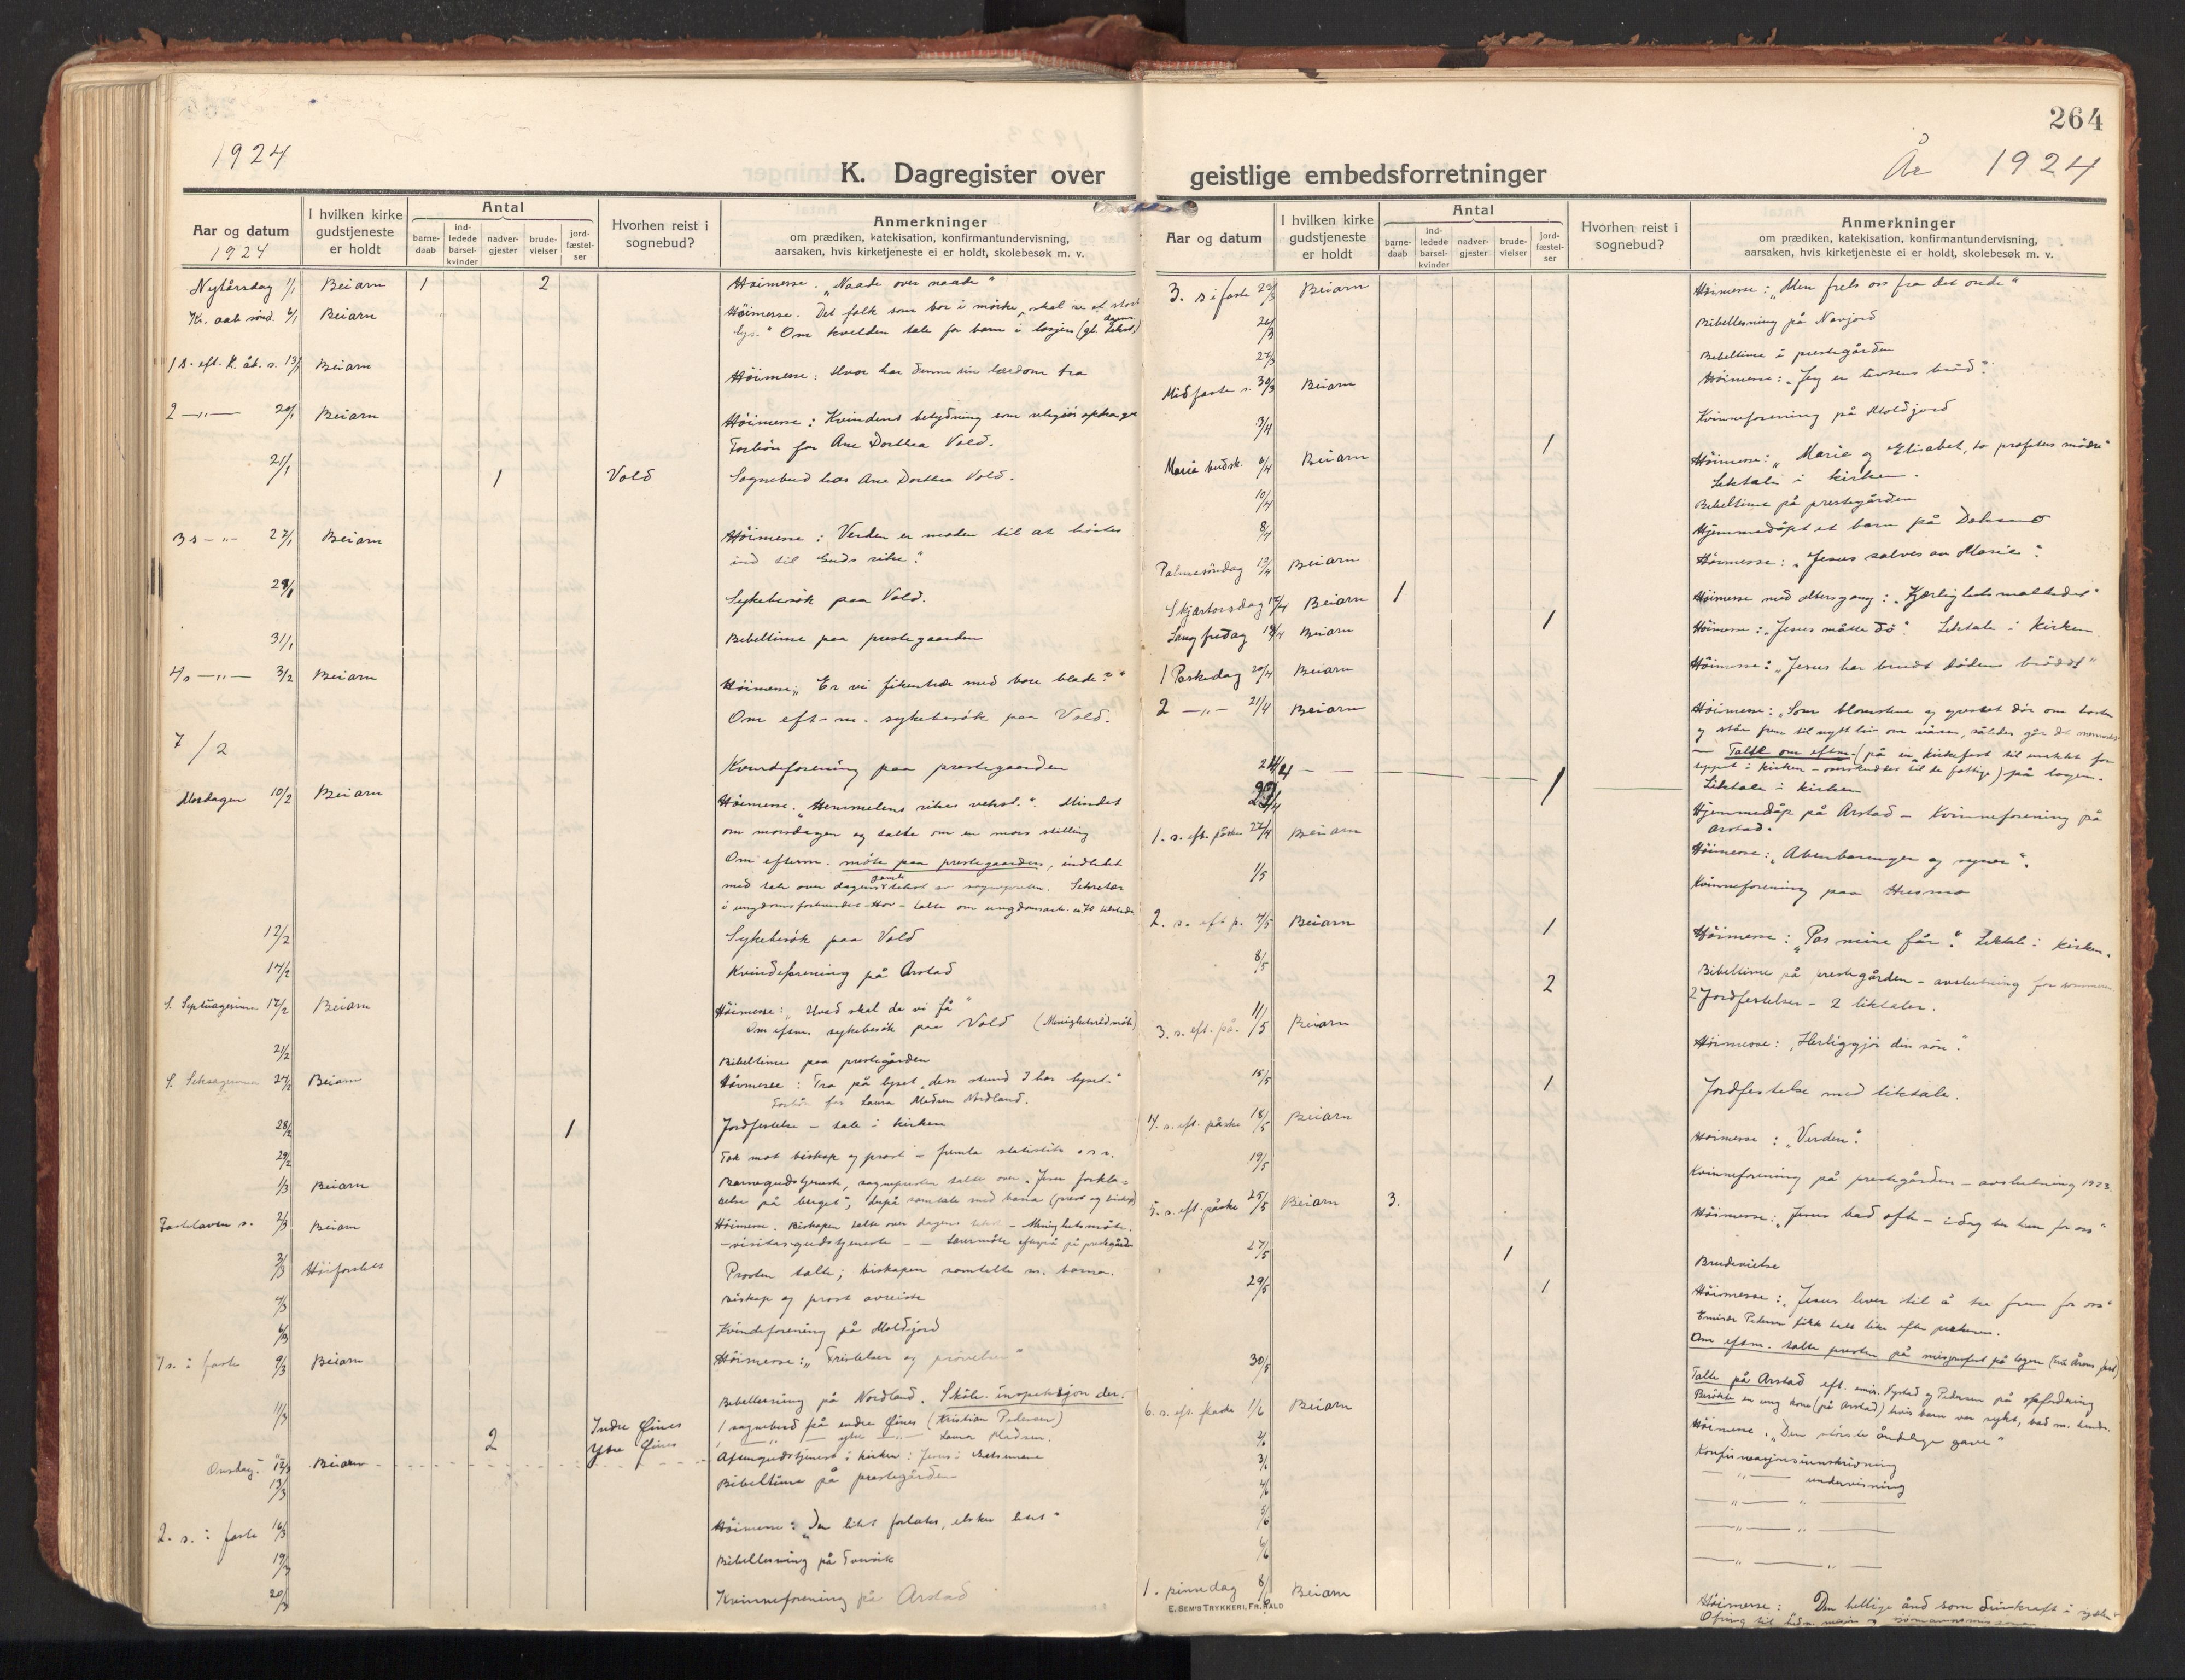 1924
K. Dagregister over
Aar og datum
1924
I hvilken kirke gudstjeneste er holdt
Antal
barne-daab
ind-ledede barsel-kvinder
nadver-gjester
brude-vielser
jord-fæstel-ser
Hvorhen reist i sognebud?
Anmerkninger
om prædiken, katekisation, konfirmantundervisning,
aarsaken, hvis kirketjeneste ei er holdt, skolebesøk m. v.
Nytårsdag 1/1 Beiarn 1 2 Høimesse. "Naade over naade"
Kr. aab. sønd. 6/1 Beiarn Høimesse. Det folk som bor i mørke, skal se et stort
lys." Om kvelden tale for barn i losjen
1 s. eft. K. åb. s. 13/1 Beiarn Høimesse: Hvor har denne sin lærdom fra
2 —„— 20/1 Beiarn Høimesse: Kvindens betydning som religiøs
Forbøn for Ane Dorthea Vold.
21/1 1 Vold Sognebud hos Ane Dorthea Vold.
3 s —„— 27/1 Beiarn Høimesse: Verden er moden til at høstes
ind til Guds rike."
29/1 Sykebesøk paa Vold.
31/1 Bibeltime paa prestegaarden
4 s —„— 3/2 Beiarn Høimesse: "Er vi fikentrær med bare blade?"
Om eft-m. sykebesøk paa Vold.
7/2 Kvindeforening paa prestegaarden
Morsdagen 10/2 Beiarn Høimesse. "Himmelens rikes vekst." Mindet
om morsdagen og talte om en mors stilling
Om efterm. møte paa prestegaarden, indledet
med tale over dagens gamle tekst av sognepresten. Sekretær
i ungdomsforbundet - Hov - talte om
12/2 Sykebesøk paa Vold
14/2 Kvindeforening på Arstad
S. Septuagesima 17/2 Beiarn Høimesse: "Hvad skal da vi få"
Om eftm. sykebesøk paa Vold (Menighetsrådmøte)
21/2 Bibeltime paa prestegården
S. Seksagesima 24/2 Beiarn Høimesse: Tro på lyset, den stund I har lyset."
Forbøn for Laura Madsen Nordland.
28/2 1 Jordfestelse - tale i kirken
29/2 Tok mot biskop og prost - statistikk o s v.
1/3 Beiarn Barnegudstjeneste, sognepresten talte over "Jesu forkla-
relse på berget", derpå samtale med barna (prost og biskop)
Fastelavns s. 2/3 Beiarn Høimesse. Biskopen talte over dagens tekst - Menighetsmøte.
- visitasgudstjeneste - - Lærermøte efterpå på prestegården
3/3 Høiforslet Prosten talte; biskopen samtalte m. barna.
4/3 Biskop og prost avreiste
6/3 Kvindeforening på Moldjord
1 s. i faste 9/3 Beiarn Høimesse: "Fristelser og prøvelser"
11/3 Bibellesning på Nordland. Skole-inspeksjon der.
Indre Øines 1 sognebud på indre Øines (Kristian Pedersen)
2 Ytre Øines 1 —„— ytre —„— Laura Madsen.
Onsdag 12/3 Beiarn Aftengudstjeneste i kirken: Jesus i Getsemane
13/3 Bibeltime på prestegården
2. s. i faste 16/3 Høimesse: "Den litet forlates, elsker litet"
19/3 Bibellesning på Tvervik
20/3 Kvinneforening på Arstad
264
År 1924
geistlige embedsforretninger
Aar og datum
I hvilken kirke gudstjeneste er holdt
Antal
barne-daab
ind-ledede barsel-kvinder
nadver-gjester
brude-vielser
jord-fæstel-ser
Hvorhen reist i sognebud?
Anmerkninger
om prædiken, katekisation, konfirmantundervisning,
aarsaken, hvis kirketjeneste ei er holdt, skolebesøk m. v.
3. s i faste 23/3 Beiarn Høimesse: "Men frels oss fra det onde"
26/3 Bibellesning på Navjord
27/3 Bibeltime i prestegården
Midfaste s. 30/3 Beiarn Høimesse: "Jeg er livsens brød".
3/4 Kvinneforening på Moldjord
Marie budsk. 6/4 Beiarn 1 Høimesse: "Maria og Elisabet, to profeters mødre"
Liktale i kirken.
10/4 Bibeltime på prestegården
8/4 Hjemmedøpt et barn på
Palmesøndag 13/4 Beiarn Høimesse: "Jesus salves av Maria".
Skjærtorsdag 17/4 Beiarn 1 Høimesse med altergang: "Kjærlighetsmåltidet"
Langfredag 18/4 Beiarn 1 Høimesse: "Jesus måtte dø". Liktale i kirken
1 Påskedag 20/4 Beiarn Høimesse: "Jesus har brudt dødens brodd"
2 —„— 21/4 Beiarn Høimesse: "Som blomstene og gresset dør om høsten
og står frem til nytt liv om våren, således går det mennesket
— Talte om eftm. (på en kirkefest til inntekt for
teppet i kirken - overskuddet til de fattige) på logen.
24/4 1 Liktale i kirken
Hjemmedåp på Arstad - Kvinneforening på
Arstad.
1. s. eft. påske 27/4 Beiarn Høimesse: "Åbenbaringer og syner".
1/5 Kvinneforening paa Husmo
2. s. eft p. 4/5 Beiarn 1 Høimesse: "Pas mine får". Liktale i kirken.
8/5 Bibeltime på prestegården - avslutning for sommeren
2 2 Jordfestelser - 2 liktaler.
3. s. eft. på. 11/5 Beiarn Høimesse: "Herliggjør din søn".
15/5 1 Jordfestelse med liktale.
4. s. eft. påske 18/5 Beiarn Høimesse: "Verden".
19/5 Kvinneforening på prestegården - avslutning 1923.
5. s. eft. påske 25/5 Beiarn 3. Høimesse: "Jesus bad ofte - idag ber han for oss"
27/5 1 Brudevielse
29/5 1 Høimesse: "Jesus lever til å tre frem for oss"
Emissær Pedersen fikk tale like efter prekenen.
Om eftm. talte presten på misjonsfest på logen
30/5 Talte på Arstad eft. emis. Nystad og Pedersen på opfordning
Besøkte en ung kone (på Arstad) hvis barn var sykt, bad m. hende.
6. s. eft. påske 1/6 Beiarn Høimesse. "Den største åndelige gave"
2/6 Konfirmasjonsinnskrivning
3/6 —„— undervisning
4/6 —„— „ —
5/6 —„— „ —
6/6 —„— „ —
1. pinsedag 8/6 Beiarn Høimesse: Den hellige ånd som
Ofring til
E. SEM'S TRYKKERI, FR.HALD